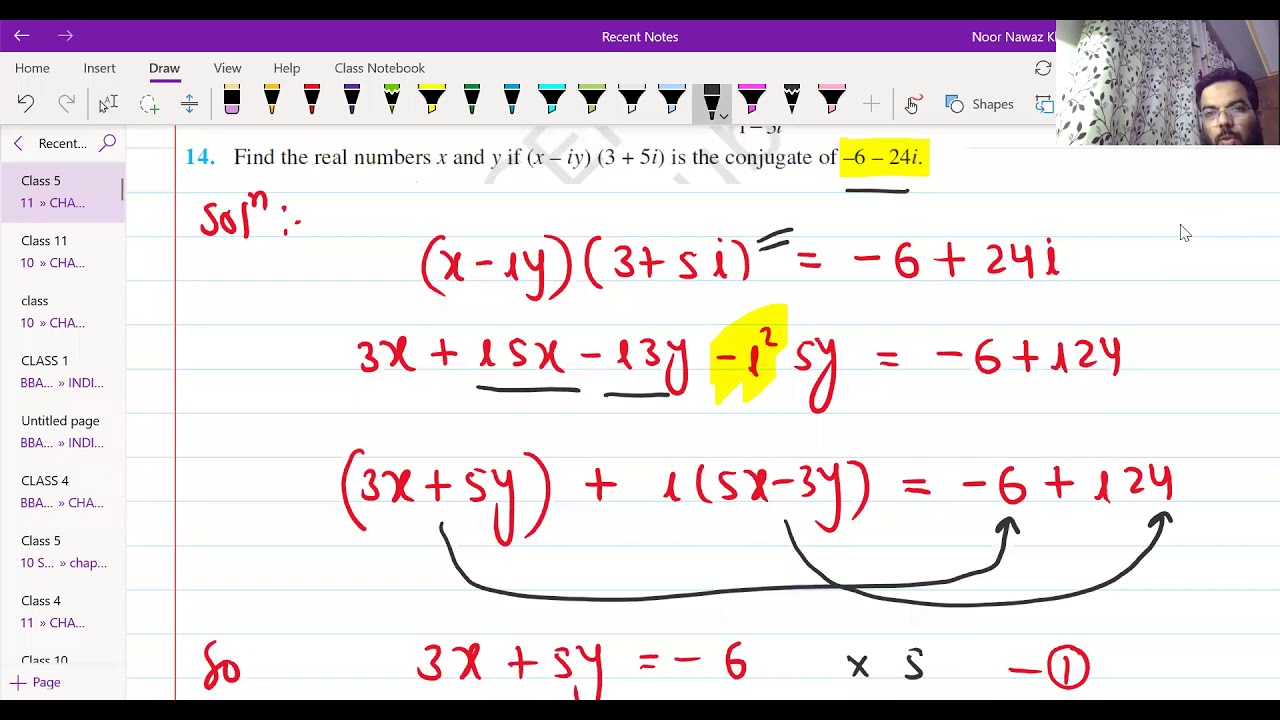 Recent Notes
Noor Nawaz
Home Insert Draw View Help Class Notebook
Shapes
Recent...
Class 5
11 » CHA...
Class 11
10 » CHA...
class
10 » CHA...
CLASS 1
BBA... » INDI...
Untitled page
BBA... » INDI...
CLASS 4
BBA... » CHA...
Class 5
10 S... » chap...
Class 4
11 » CHA...
Class 10
+ Page
14. Find the real numbers x and y if (x – iy) (3 + 5i) is the conjugate of –6 – 24i.
Solⁿ :-
(x - iy) (3 + 5i) = - 6 + 24i
3x + i5x - i3y - i² 5y = - 6 + i24
(3x + 5y) + i(5x - 3y) = - 6 + i24
So 3x + 5y = - 6 × 5 - ①